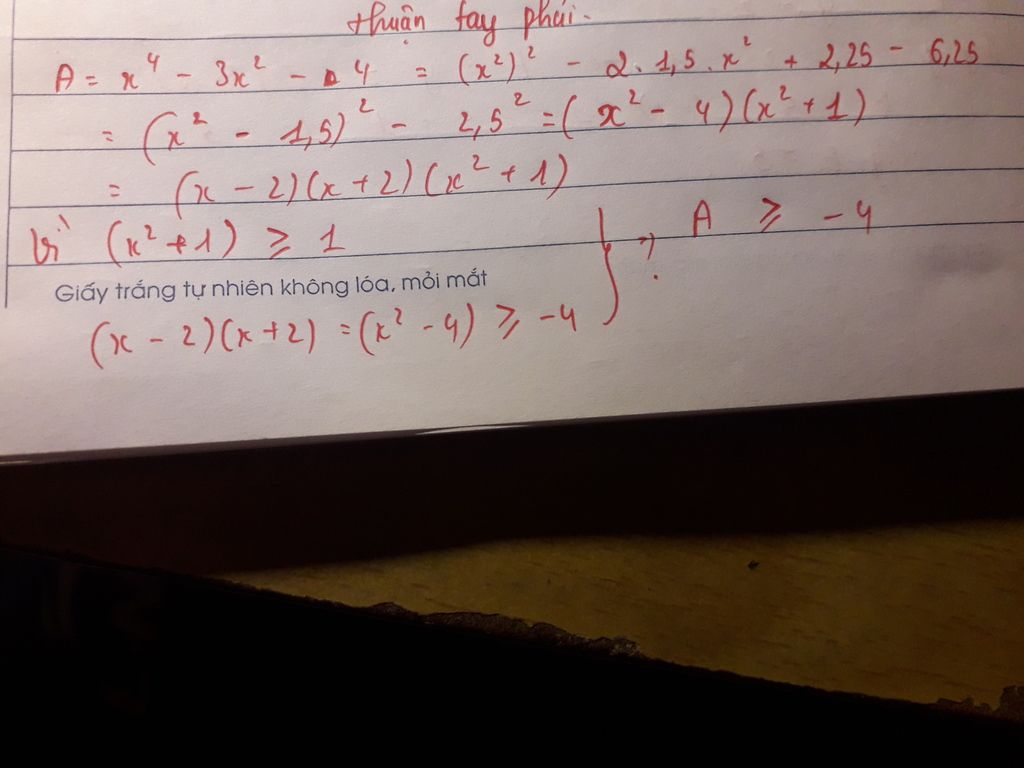 thuận tay phải.
A = x⁴ - 3x² - 4 = (x²)² - 2.1,5.x² + 2,25 - 6,25
= (x² - 1,5)² - 2,5² = (x² - 4)(x² + 1)
= (x - 2)(x + 2)(x² + 1)
Vì (x² + 1) ⩾ 1
} => A ⩾ -4
Giấy trắng tự nhiên không lóa, mỏi mắt
(x - 2)(x + 2) = (x² - 4) ⩾ -4